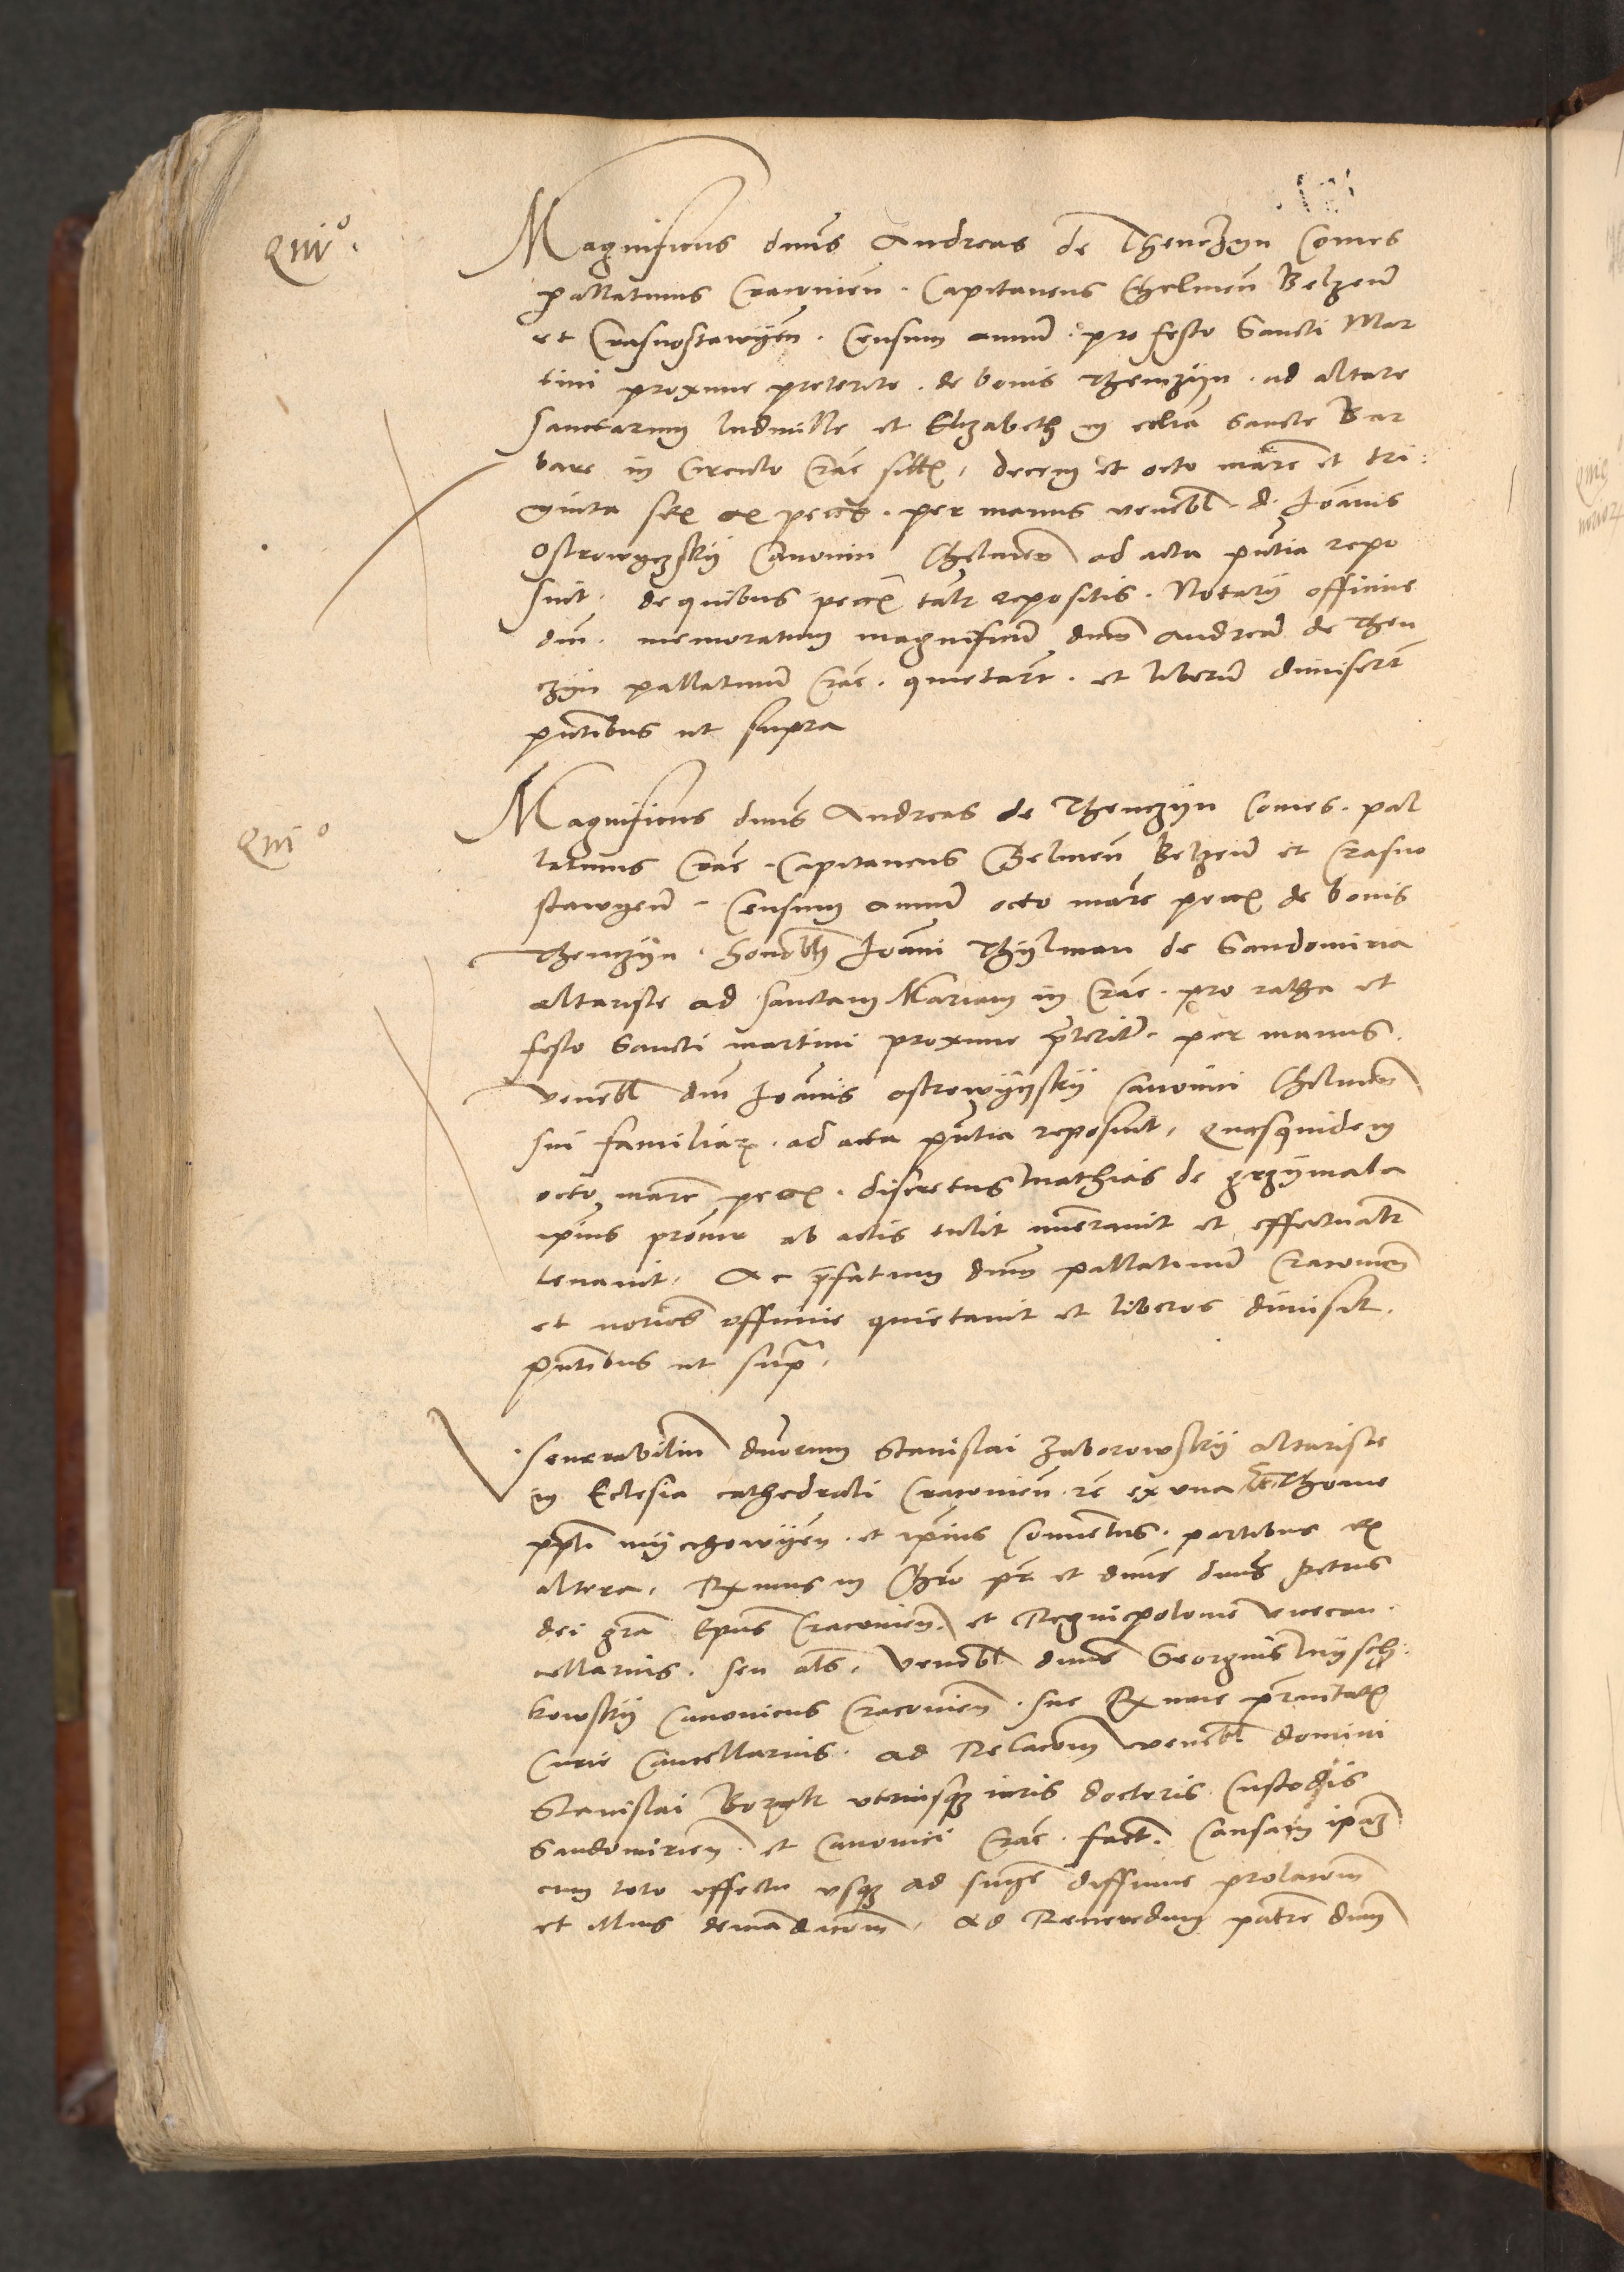 Quitº.
Magnificus dnus Andreas de Thenczyn Comes
pallatinus Cracovien. Capitaneus Chelmen Belzen
et Crasnostawyen. Censum annuu pro festo Sancti Mar
tini proxime preterito. de bonis Thenczyn. ad altare
sanctarum ludmille et Elizabeth in ecclia Sancte Bar
bare in Circulo Crac sitt, decem et octo marc et tri
ginta sex gr pecc. per manus venebl d. Joannis
Ostrowyczsky Canonici Chelmen ad acta pntia repo
suit. de quibus pecc talr repositis. Notary officine
dni. memoratum magnificu dnm Andrea de Then
czyn pallatinu Crac. quietart. et liberu dimisert
pntibus ut supra
Quitº
Magnificus dnus Andreas de Thenczyn Comes. pal
latinus Crac. Capitaneus Chelmen Belzen et Crasno
stawyen - Censum annuu octo marc pecc de bonis
Thenczyn. honobli Joanni Thylman de Sandomiria
altariste ad sanctam Mariam in Crac. pro ratha et
festo Sancti martini proxime preterit. per manus
venebl dni Joannis ostrowyczsky canonici Chelmen
sui familiar. ad acta pntia reposuit, quasquidem
octo marc pecc. discretus Mathias de grzymala
ipsius procur ab actis tulit numeravit et effectualr
levavit, Ac prefatum dnm pallatinu Cracovien
et notrios officine quietavit et liberos dimisit.
pntibus ut supra.
Venerabiliu dnorum Stanislai Zaborowsky altariste
in Eclesia cathedrali Cracovien re ex una et Thome
ppti myechowyen. et ipsius Conventus. partibus ex
altera, Rxmus in Chro pr et dnus dnus Petrus
dei gra Epus Cracovien. et Regni polonie vicecan
cellarius. seu als. venebl dnus Georgius Mysch
kowsky Canonicus Cracovien. sue Rxme pternitatis
Curie Cancellarius. ad Relacom venebl domini
Stanislai Borgk utriusq iuris doctoris Custodis
Sandomirien. et Canonici Crac. fact. Causam ipam
cum toto effectu usq ad snie diffinie prolacom
et illius demandacom, ad Reverendum patre dnm